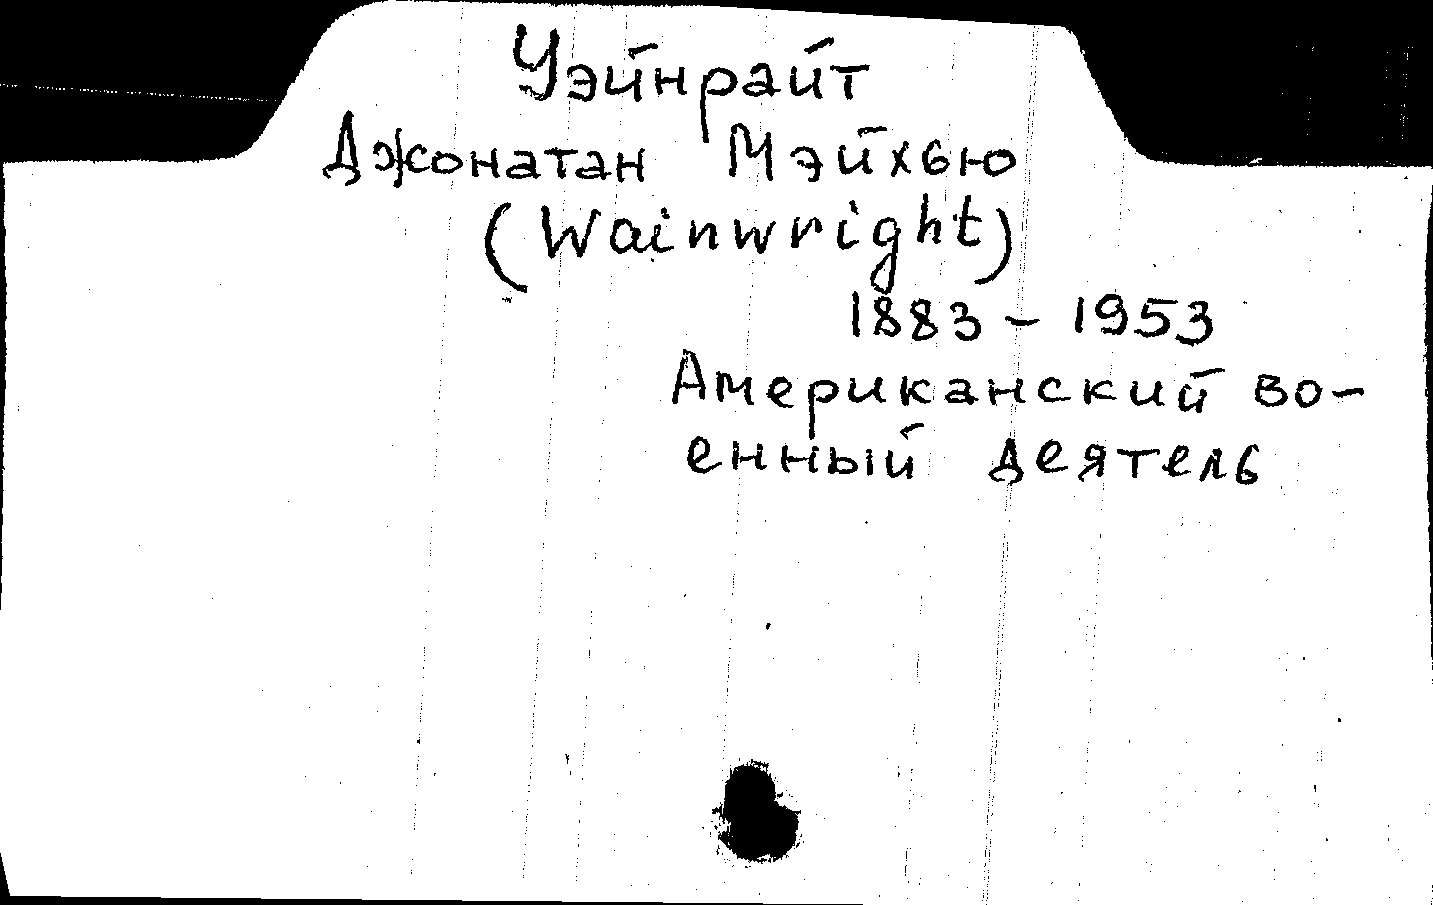 Уэйнрайт
Джонатан Мэйхью
(Wainwright)
1883 - 1953
Американский во-
енный деятель